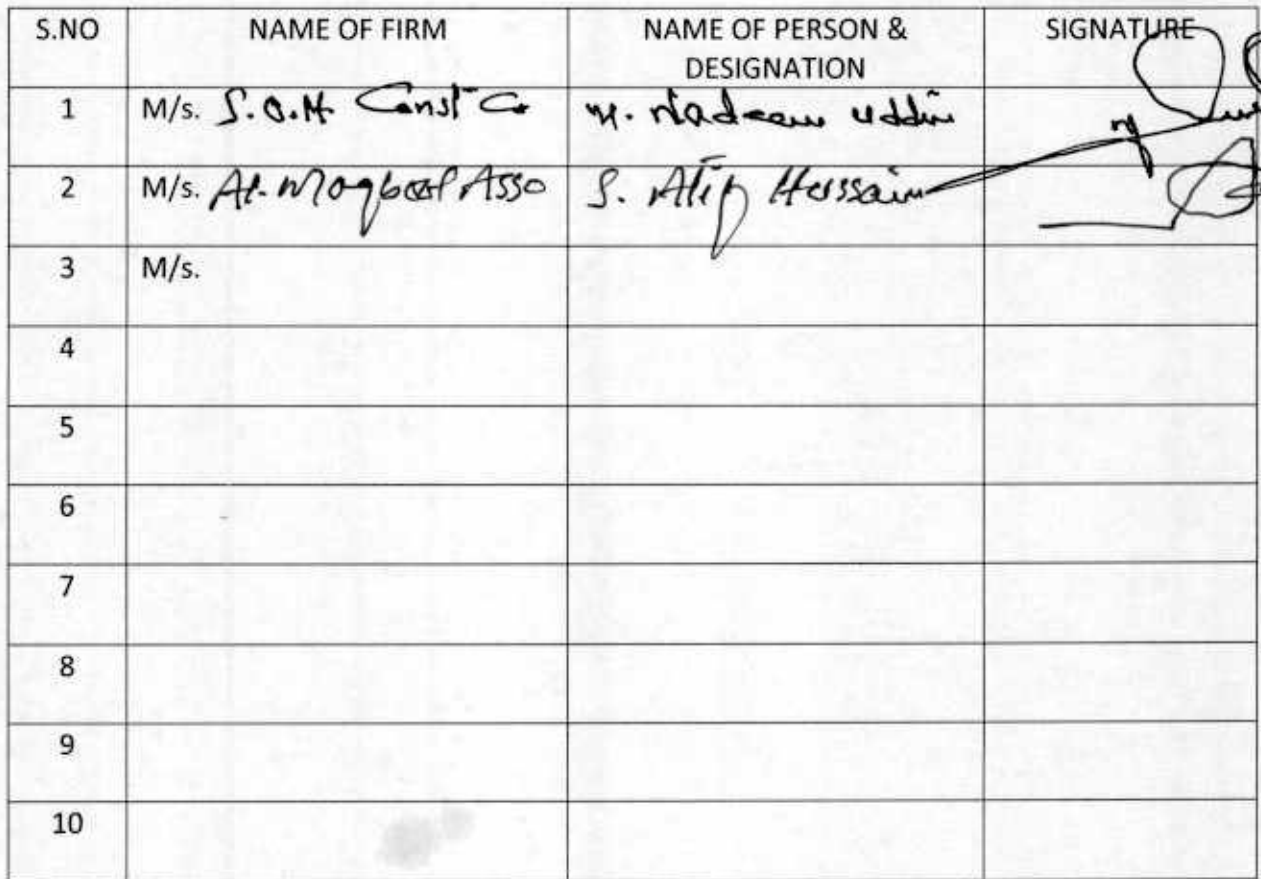 S.NO NAME OF FIRM NAME OF PERSON & SIGNATURE
DESIGNATION
1 M/s. S.O.H. Const Co M. Nadeem uddin
2 M/s. Al-Moqbool Asso S. Atiq Hussain
3 M/s.
4
5
6
7
8
9
10